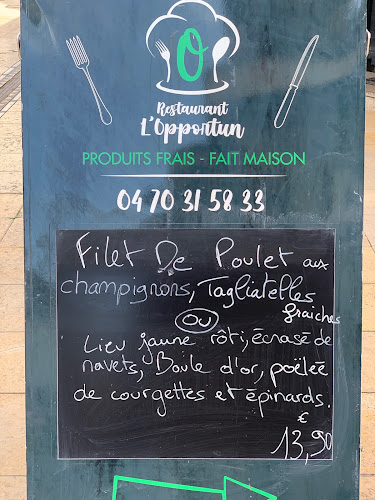 Restaurant
L'Opportun
PRODUITS FRAIS - FAIT MAISON
04 70 31 58 33
Filet De Poulet aux
champignons, Tagliatelles
fraiches
ou
Lieu jaune rôti, écrasé de
navets, Boule d'or, poëlée
de courgettes et épinards.
€
13,90